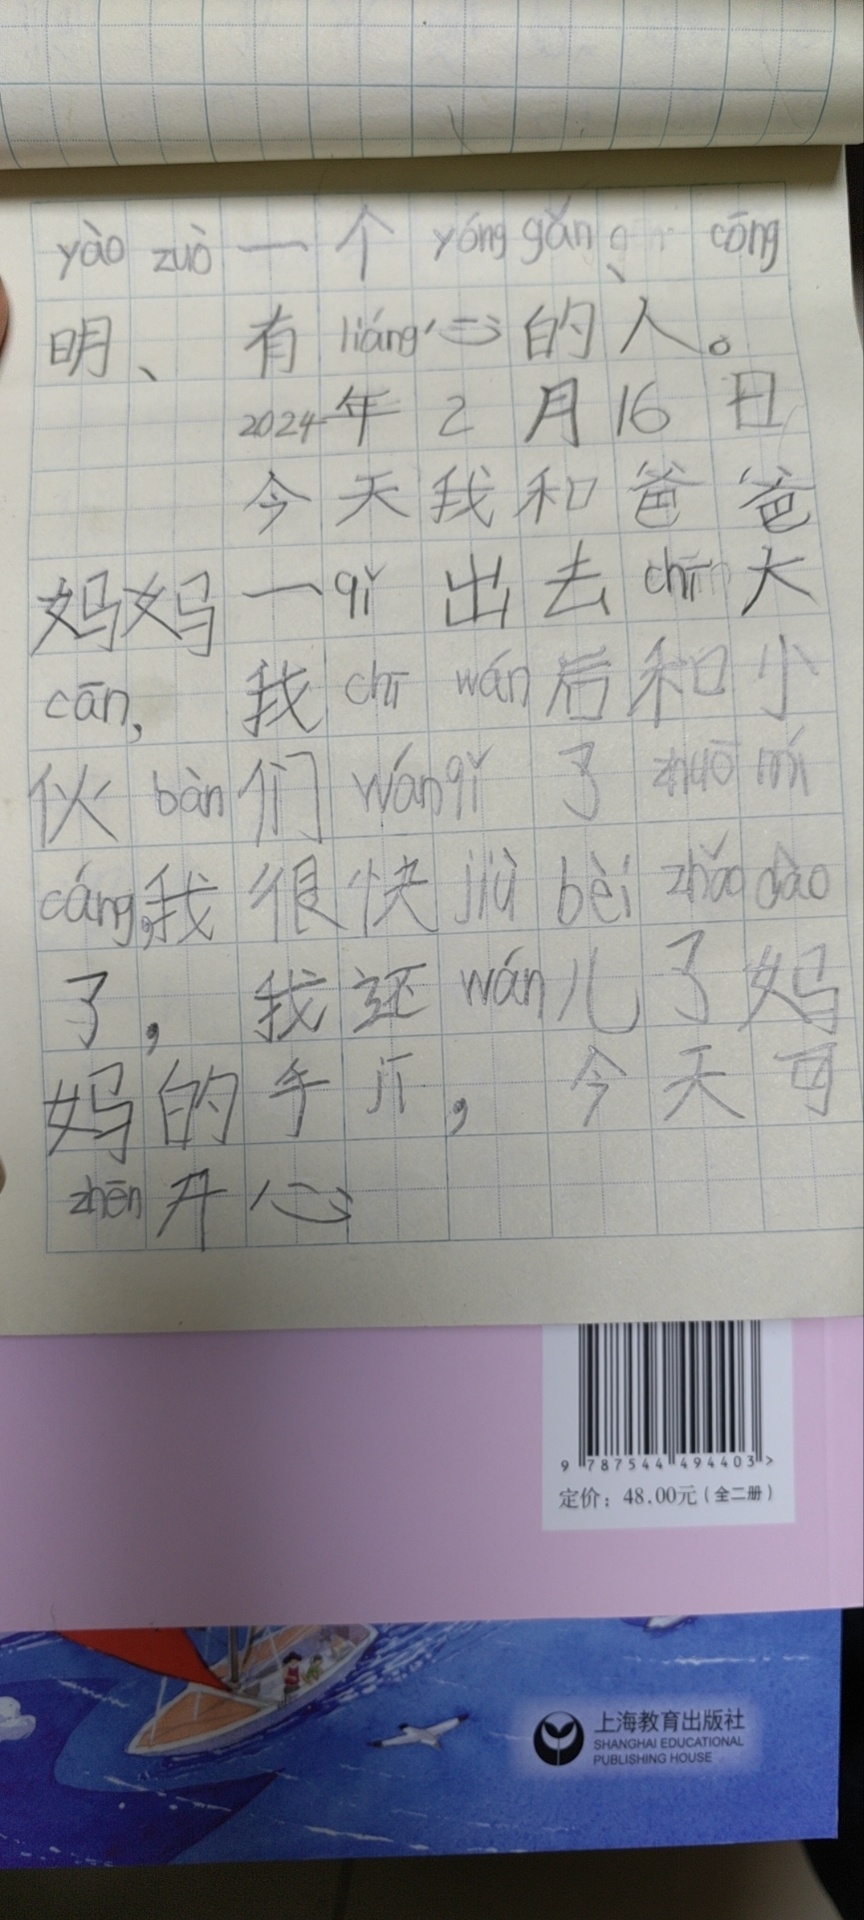 yào zuò 一 个 yóng gǎn 、 cōng
明 、 有 liáng 心 的 人 。
2024 年 2 月 16 日
今 天 我 和 爸 爸
妈 妈 一 qǐ 出 去 chī 大
cān , 我 chī wán 后 和 小
伙 bàn 们 wán qǐ 了 zhuō mí
cáng , 我 很 快 jiù bèi zhǎo dào
了 , 我 还 wán 儿 了 妈
妈 的 手 jī , 今 天 可
zhēn 开 心
9 787544 494403 >
定价：48.00元（全二册）
上海教育出版社
SHANGHAI EDUCATIONAL
PUBLISHING HOUSE